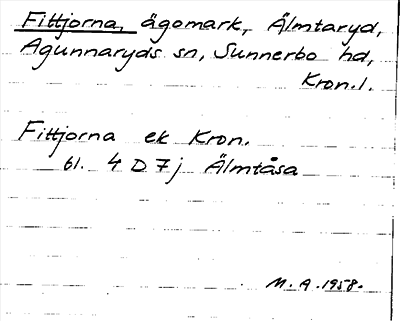 Fittjorna, ägomark, Älmtaryd,
Agunnaryds sn, Sunnerbo hd,
Kron. l.
Fittjorna ek Kron.
61. 4 D 7j Älmtåsa
M. A. 1958.